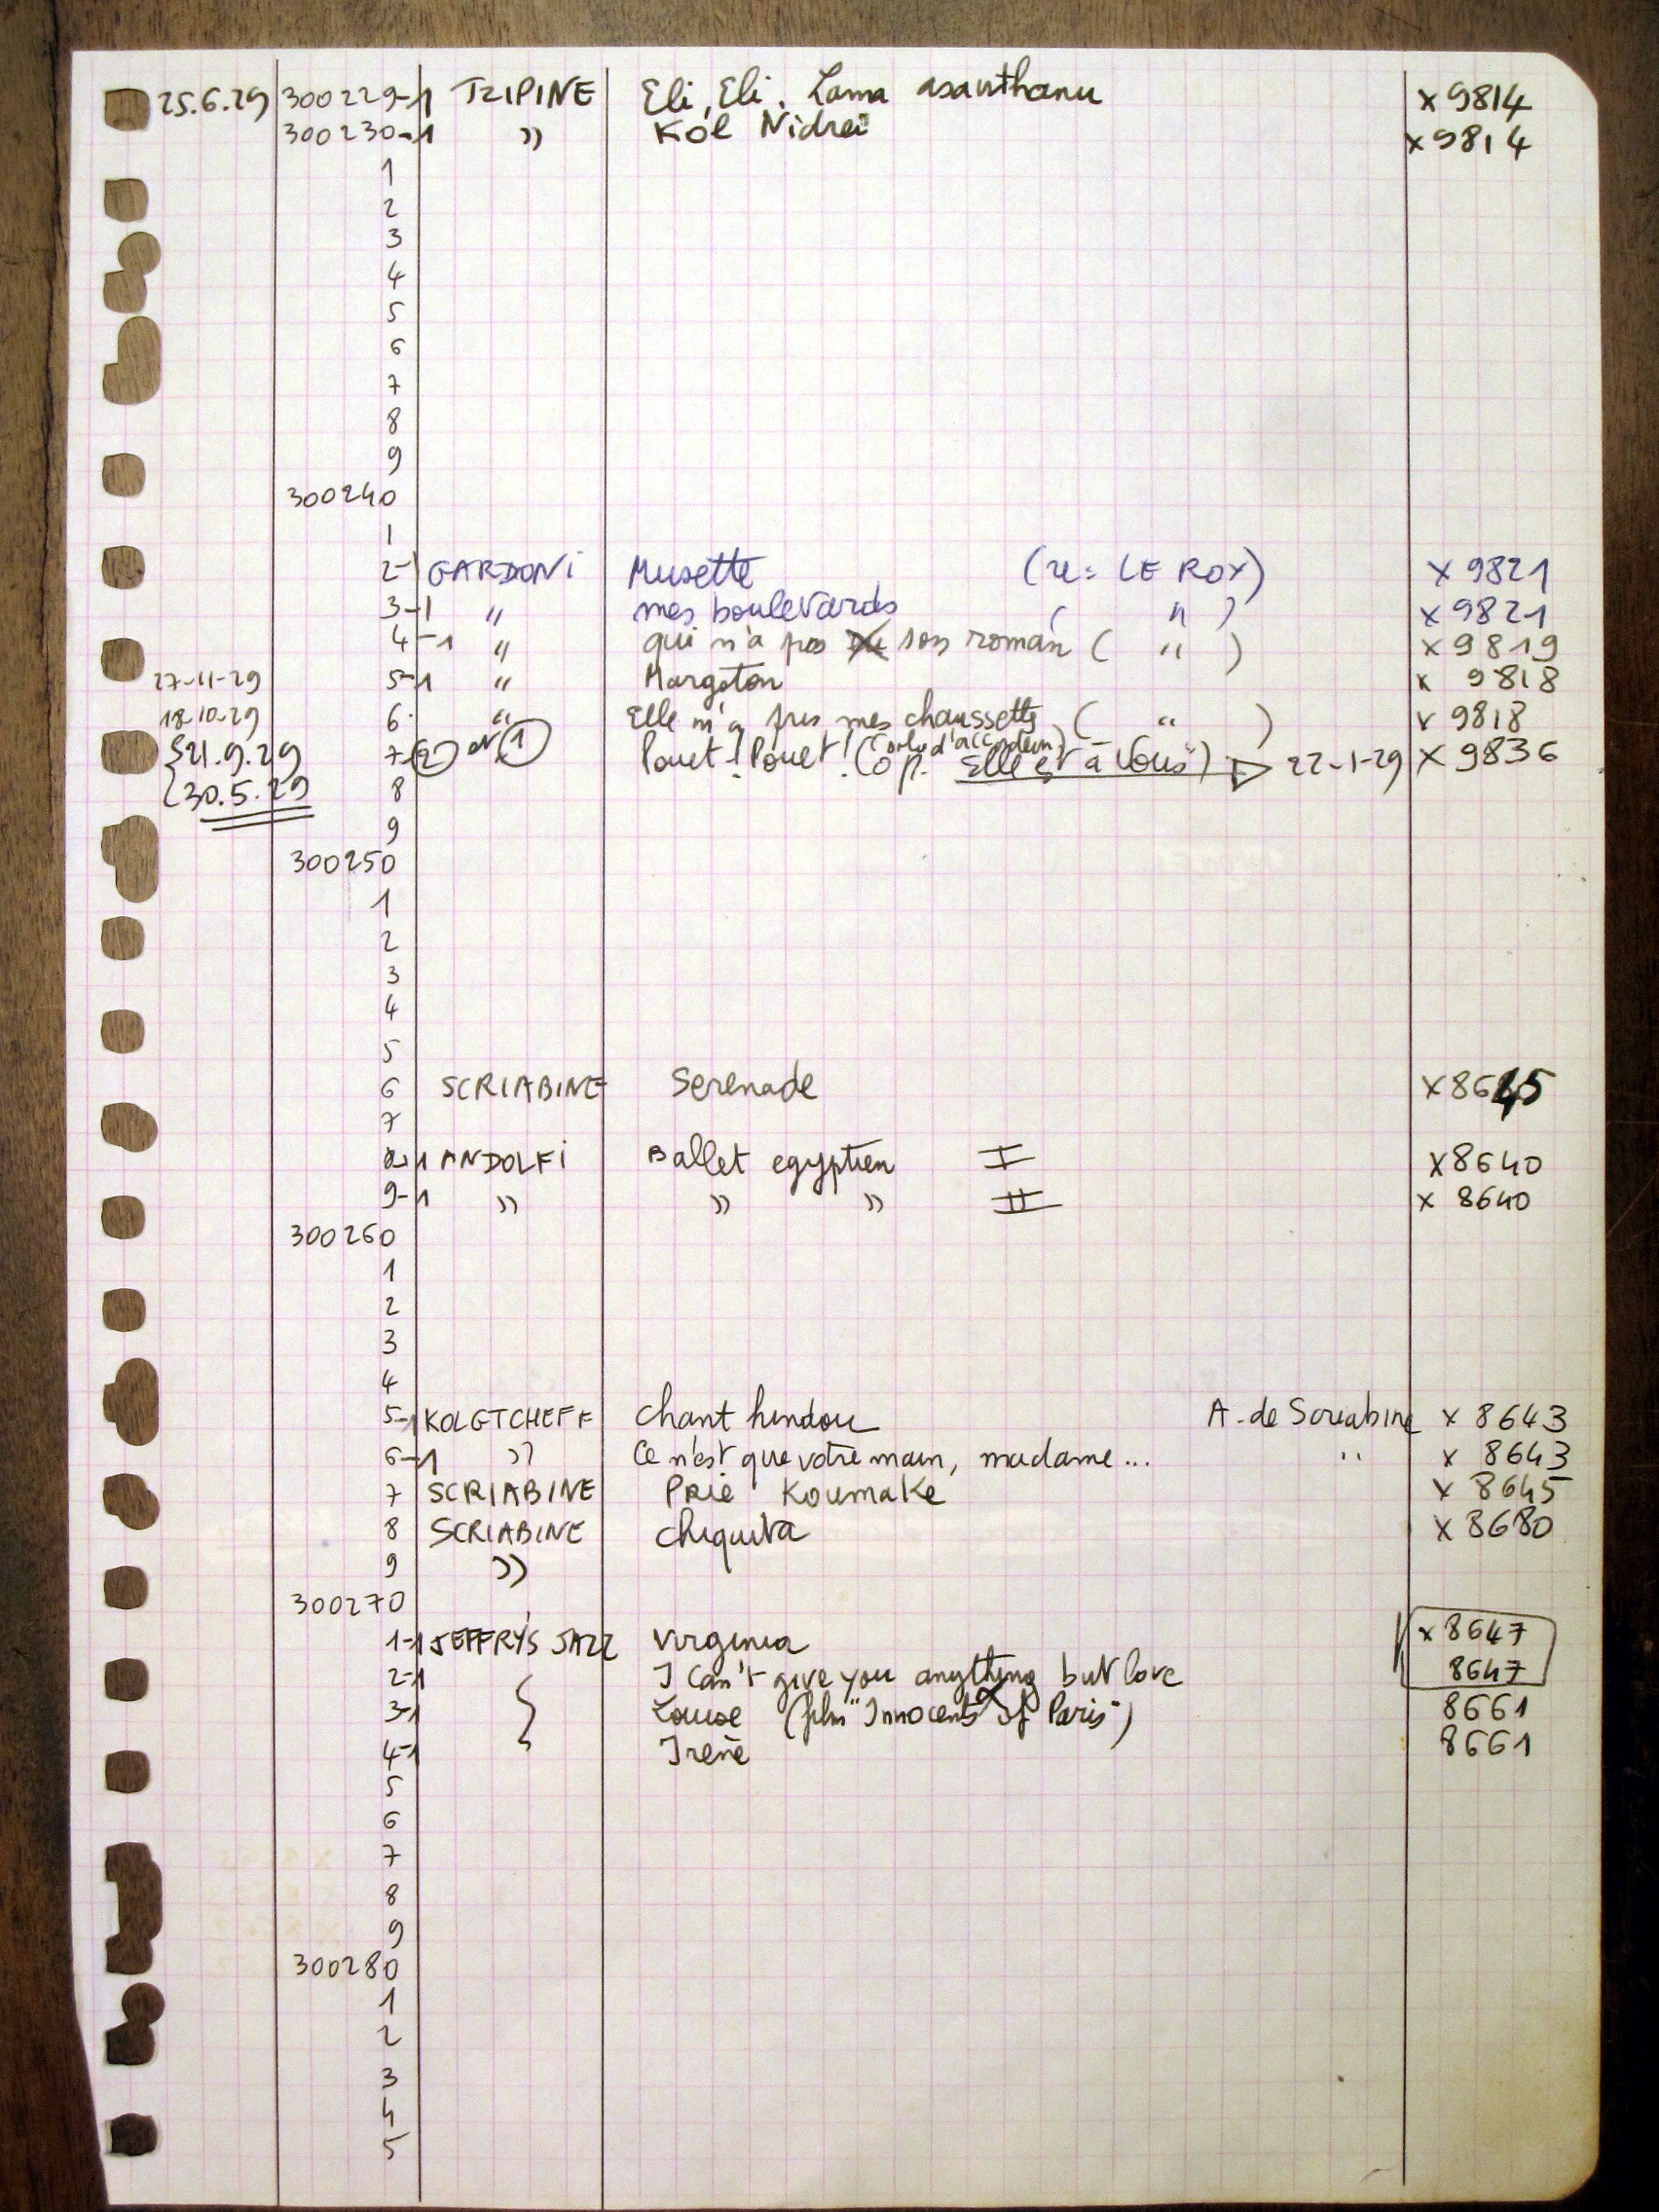 25.6.29 300229-1 TZIPINE Eli, Eli, Lama asavthanu x 9814
300230-1 » Kol Nidrei x 9814
1
2
3
4
5
6
7
8
9
300240
1
2-1 GARDONI Musette (re: LE ROY) x 9821
3-1 " mes boulevards ( " ) x 9821
4-1 " qui n'a pas son roman ( " ) x 9819
27-11-29 5-1 " Margoton x 9818
18-10-29 6 " Elle m'a pris mes chaussettes ( " ) x 9818
21.9.29 7-(2) et (1) Pouet! Pouet! (solo d'accordeon) (op. "Elle est à Vous") 22-1-29 x 9836
30.5.29 8
9
300250
1
2
3
4
5
6 SCRIABINE Serenade x 8645
7
8-1 ANDOLFI Ballet egyptien I x 8640
9-1 » » » II x 8640
300260
1
2
3
4
5-1 KOLGTCHEFF Chant hindou A. de Scriabine x 8643
6-1 » Ce n'est que votre main, madame... " x 8643
7 SCRIABINE Prié Koumake x 8645
8 SCRIABINE Chiquita x 8680
9 »
300270
1-1 JEFFRY'S JAZZ Virginia x 8647
2-1 I Can't give you anything but love 8647
3-1 Louise (film "Innocents of Paris") 8661
4-1 Irene 8661
5
6
7
8
9
300280
1
2
3
4
5